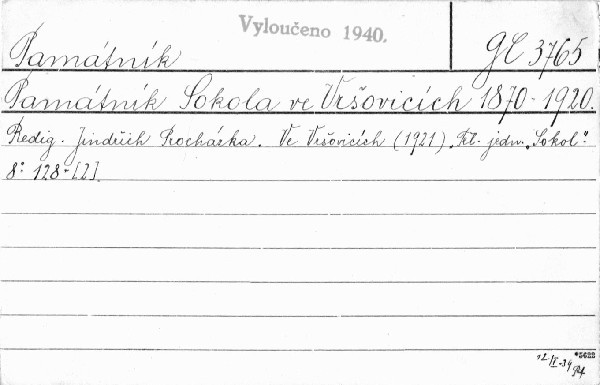 Vyloučeno 1940.
Památník
GC 3765
Památník Sokola ve Vršovicích 1870-1920.
Redig. Jindřich Procházka. Ve Vršovicích (1921). Těl. jedn. „Sokol".
8° 128-[2].
*5622
12-VI-34